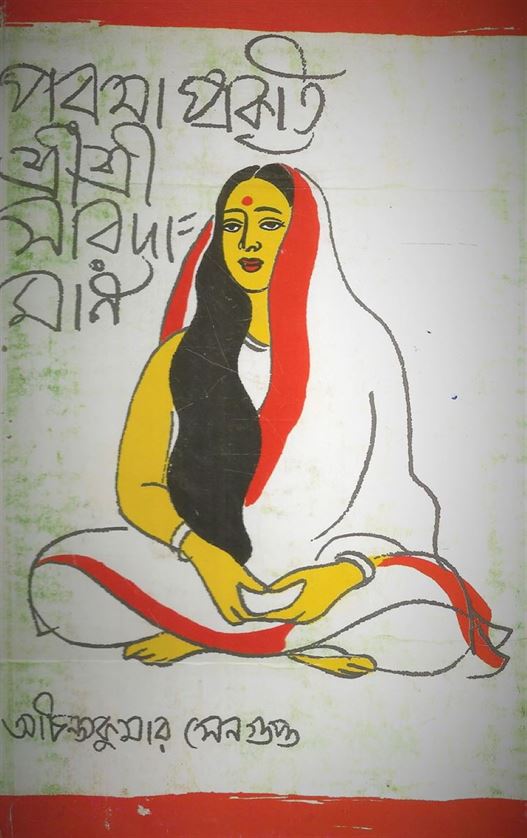 পরমা প্রকৃতি
শ্রীশ্রী
সারদা-
মণি
অচিন্ত্যকুমার সেনগুপ্ত